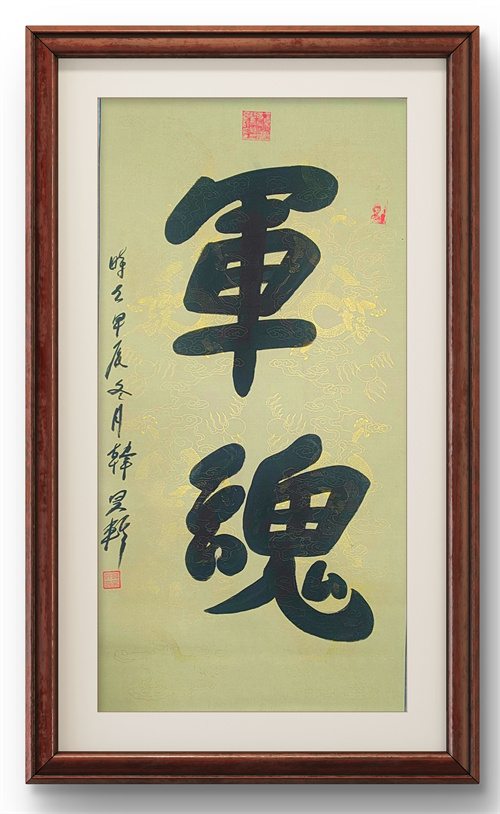 軍魂
時在甲辰冬月韓昊軒